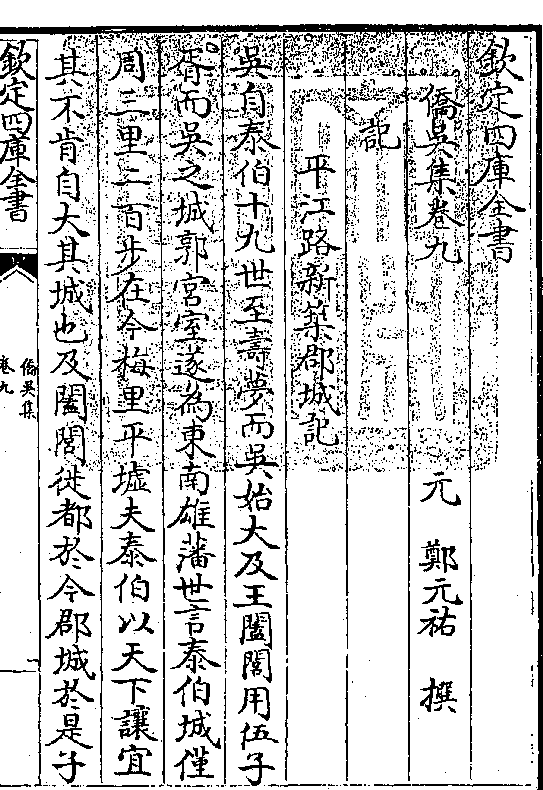 欽定四庫全書
僑吳集卷九
元　鄭元祐　撰
記
平江路新築郡城記
吳自泰伯十九世至壽夢而吳始大及王闔閭用伍子
胥而吳之城郭宮室遂為東南雄藩世言泰伯城僅
周三里二百步在今梅里平墟夫泰伯以天下讓宜
其不肯自大其城也及闔閭徙都於今郡城於是子
欽定四庫全書
僑吳集
卷九